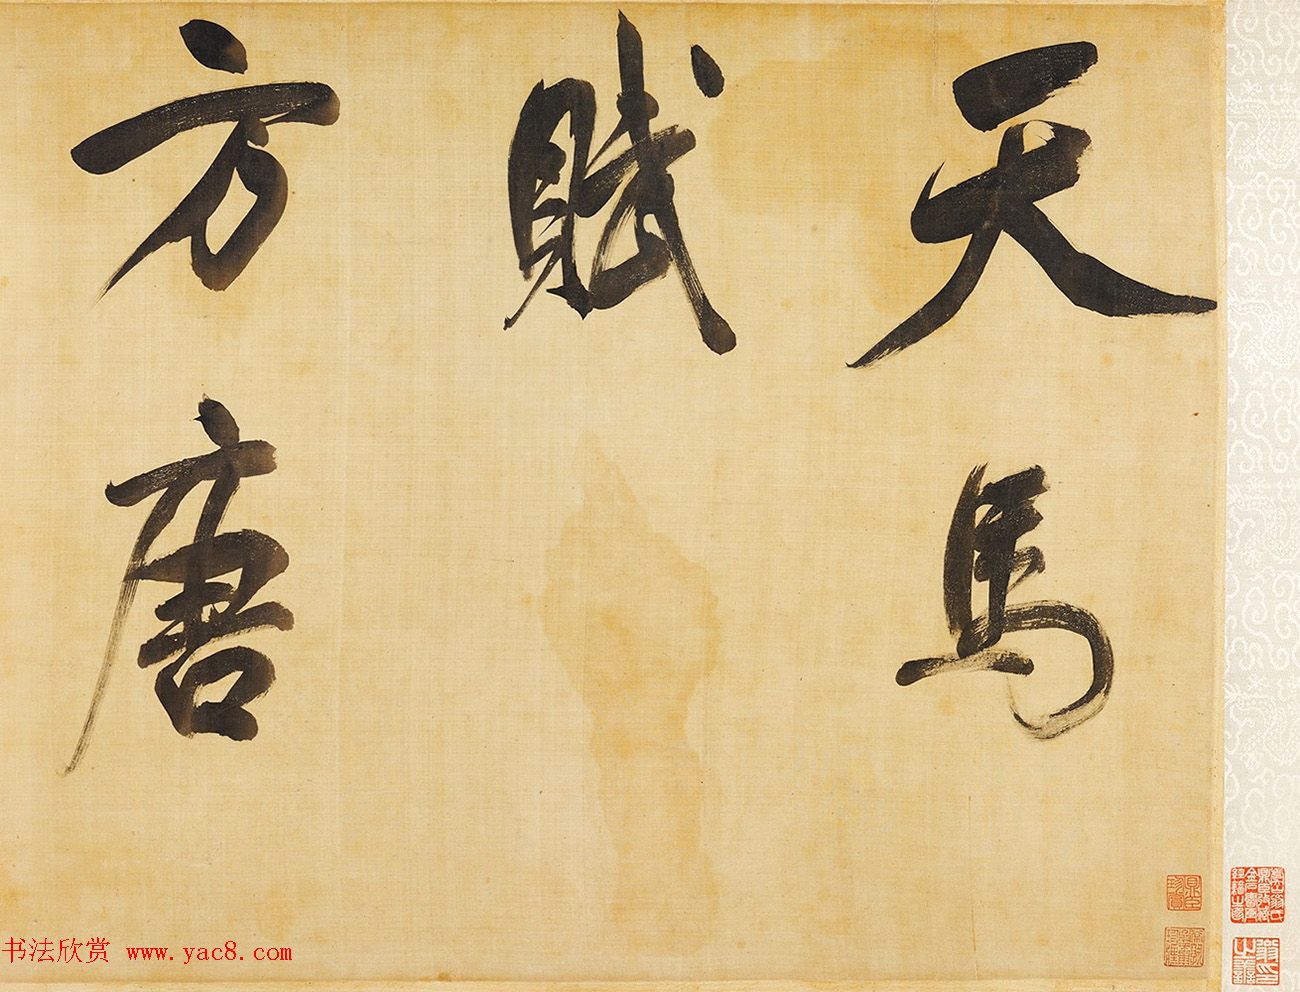 天馬
賦
方唐
翁氏
之善
书法欣赏 www.yac8.com